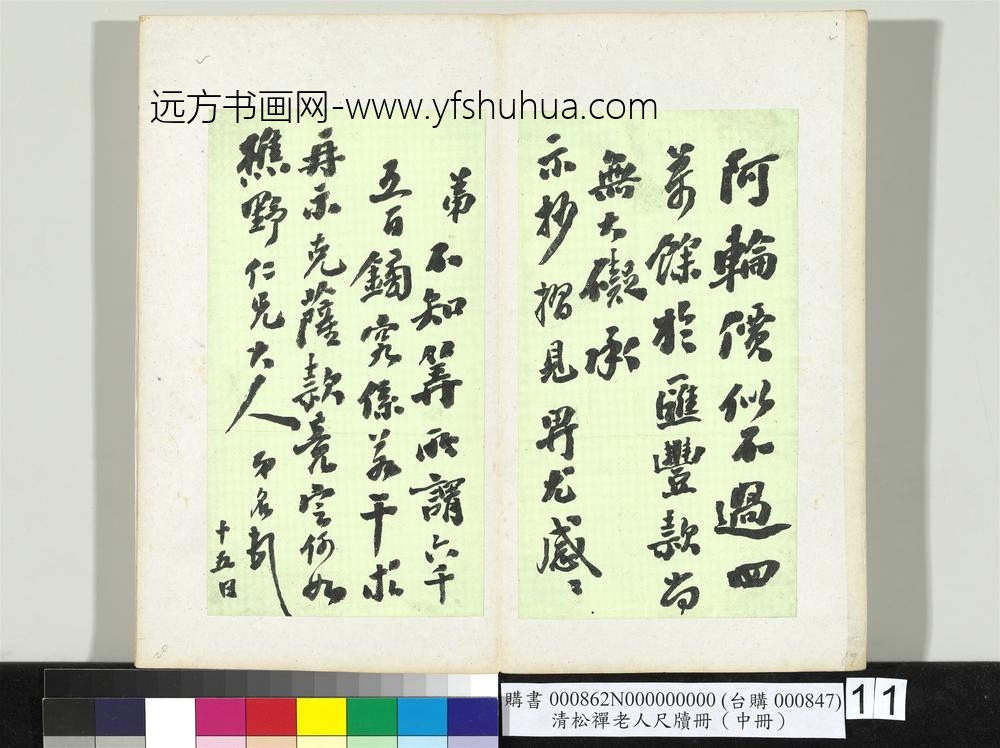 远方书画网-www.yfshuhua.com
阿輪價似不過四
萬餘於匯豐款尚
無大礙承
示抄摺見畀尤感〻
弟不知筭所謂六千
五百鎊究係若干求
再示克薩款竟空何如
樵野仁兄大人 名頓
十五日
購書 000862N000000000 (台購 000847)
清松禪老人尺牘冊（中冊）
11
20
19